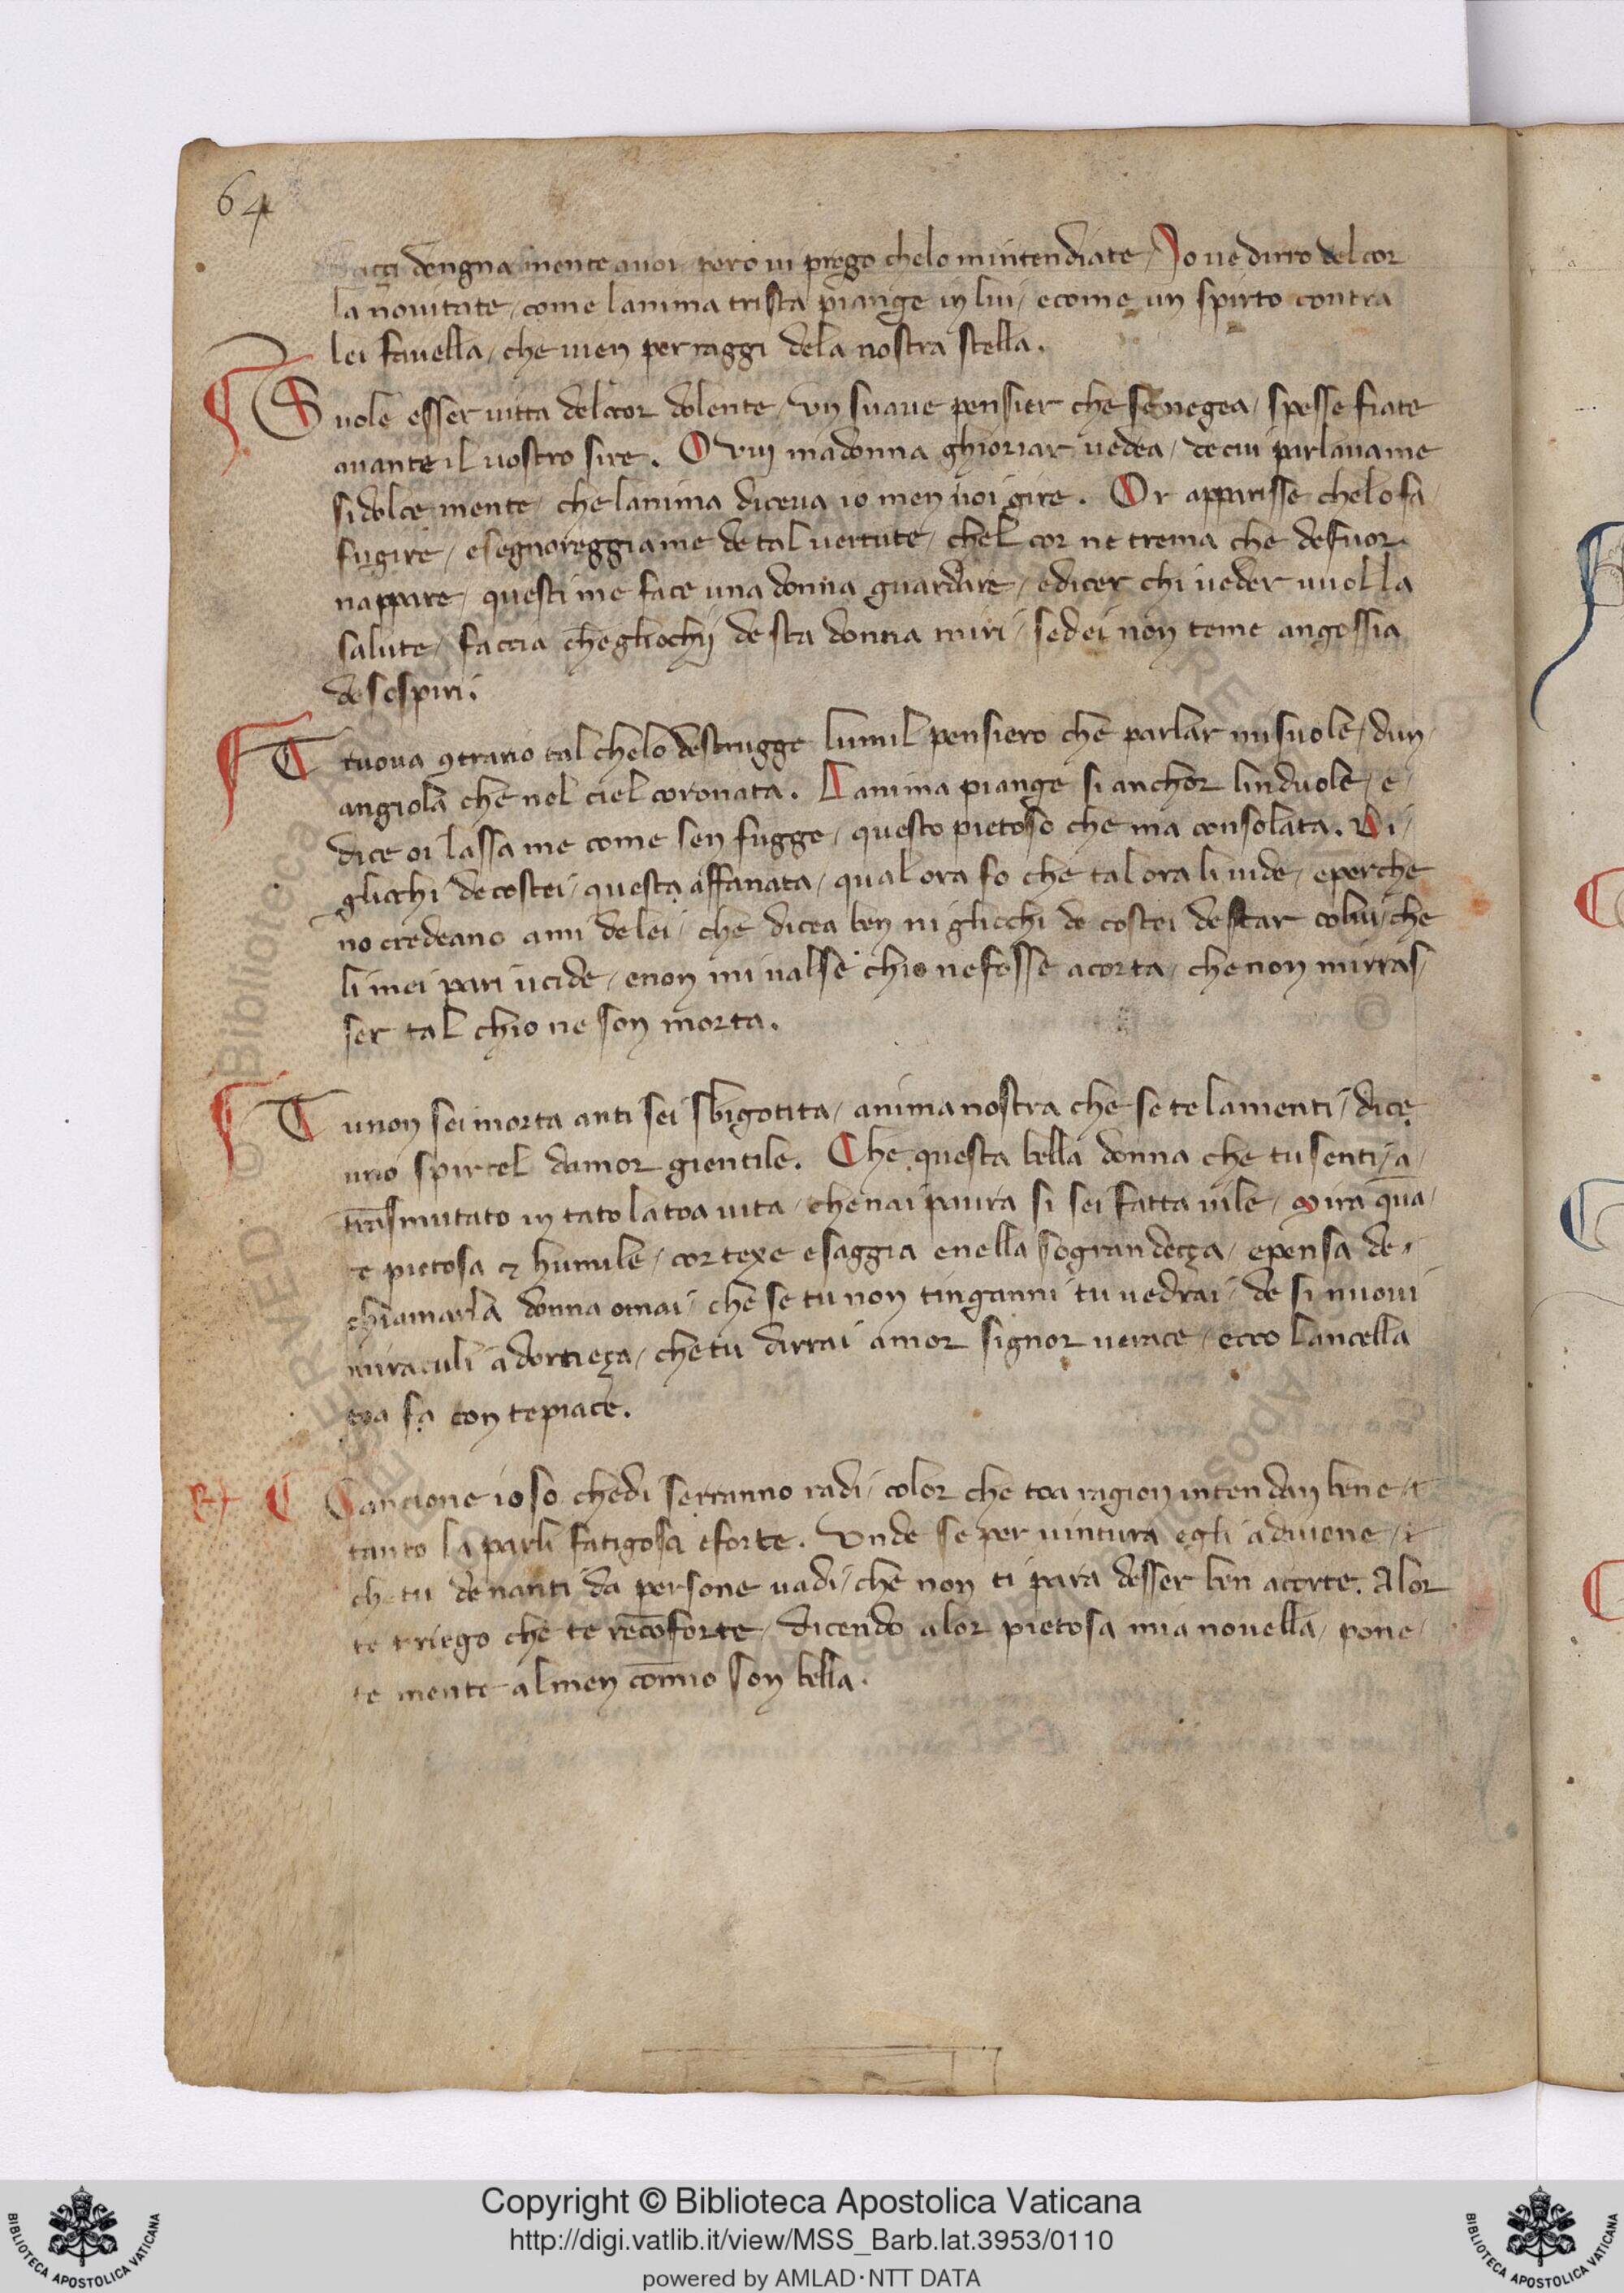 64
dengnamente auoi / pero ui prego chelo mintendiate / Io ue dirro delcor
la nouitate / come lanima trista piange in lui / ecome un spirto contra
lei fauella / che uien per raggi dela nostra stella.
Suole esser uitta delcor dolente / vn suaue pensier che se negea / spesse fiate
auante il uostro sire. O vm madonna ghioriar uedea / de cui parlauame
si dolce mente / che lanima diceua io men uoi gire. Or apparisse chelo fa /
fugire / e segnoreggiame de tal uertute / chel cor ne trema che defuor
nappare / questi me face una donna guardare / edicer chi ueder uuol la
salute / faccia che gliochij de sta donna miri / sed ei non teme angossia
de sospiri.
Truoua 9trario tal chelo destrugge lumil pensiero che parlar mi suole / dun /
angiola che nel ciel coronata. Lanima piange si anchor lin duole / e /
dice oi lassa me come sen fugge / questo pietoso che ma consolata. Di /
gliochi de costei / questa affanata / qual ora fo che tal ora li uide / eperche
no credeano ami de lei / che dicea ben ni gliocchi de costei de star colui / che
li mei pari ucide / enon mi ualse chio ne fosse acorta / che non mirras /
ser tal chio ne son morta.
Tu non sei morta anti sei sbigotita / anima nostra che se te lamenti / dice
uno spirtel damor gientile. Che questa bella donna che tu senti / a /
trasmutato in tato la toa uita / che nai paura si sei fatta uile / Mira qua /
te pietosa & humile / cortexe e saggia enella so grandecça / epensa de /
chiamarla donna omai / che se tu non tinganni tu uedrai / de si nuoui
miraculi adorneça / che tu dirrai amor signor uerace / ecco lancella
toa fa con te piace.
Cancione io so che di serranno radi / color che toa ragion intendan bene /
tanto la parli fatigosa e forte. Vnde se per uintura egli aduiene /
che tu denanti da persone uadi / che non ti para desser ben acorte. Alor
te priego che te reconforte / dicendo alor pietosa mia nouella / pone /
te mente almen commo son bella.
RESERVED
© Biblioteca Apostolica Vaticana
Copyright © Biblioteca Apostolica Vaticana
http://digi.vatlib.it/view/MSS_Barb.lat.3953/0110
powered by AMLAD·NTT DATA
BIBLIOTECA APOSTOLICA VATICANA
BIBLIOTECA APOSTOLICA VATICANA